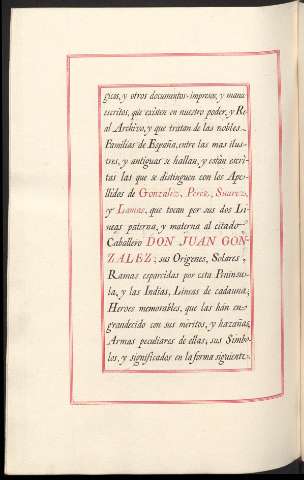 gicos, y otros documentos impresos, y manu
escritos, que existen en nuestro poder, y Re
al Archivo, y que tratan de las nobles
Familias de España, entre las mas ilus
tres, y antiguas se hallan, y están escri
tas las que se distinguen con los Ape
llidos de Gonzalez, Perez, Suarez,
y Lamas, que tocan por sus dos Li
neas paterna, y materna al citado
Caballero DON JUAN GON
ZALEZ; sus Origenes, Solares,
Ramas esparcidas por esta Peninsu
la, y las Indias, Lineas de cadauna;
Heroes memorables, que las hán en
grandecido con sus méritos, y hazañas,
Armas peculiares de ellas; sus Simbo
los, y significados en la forma siguiente